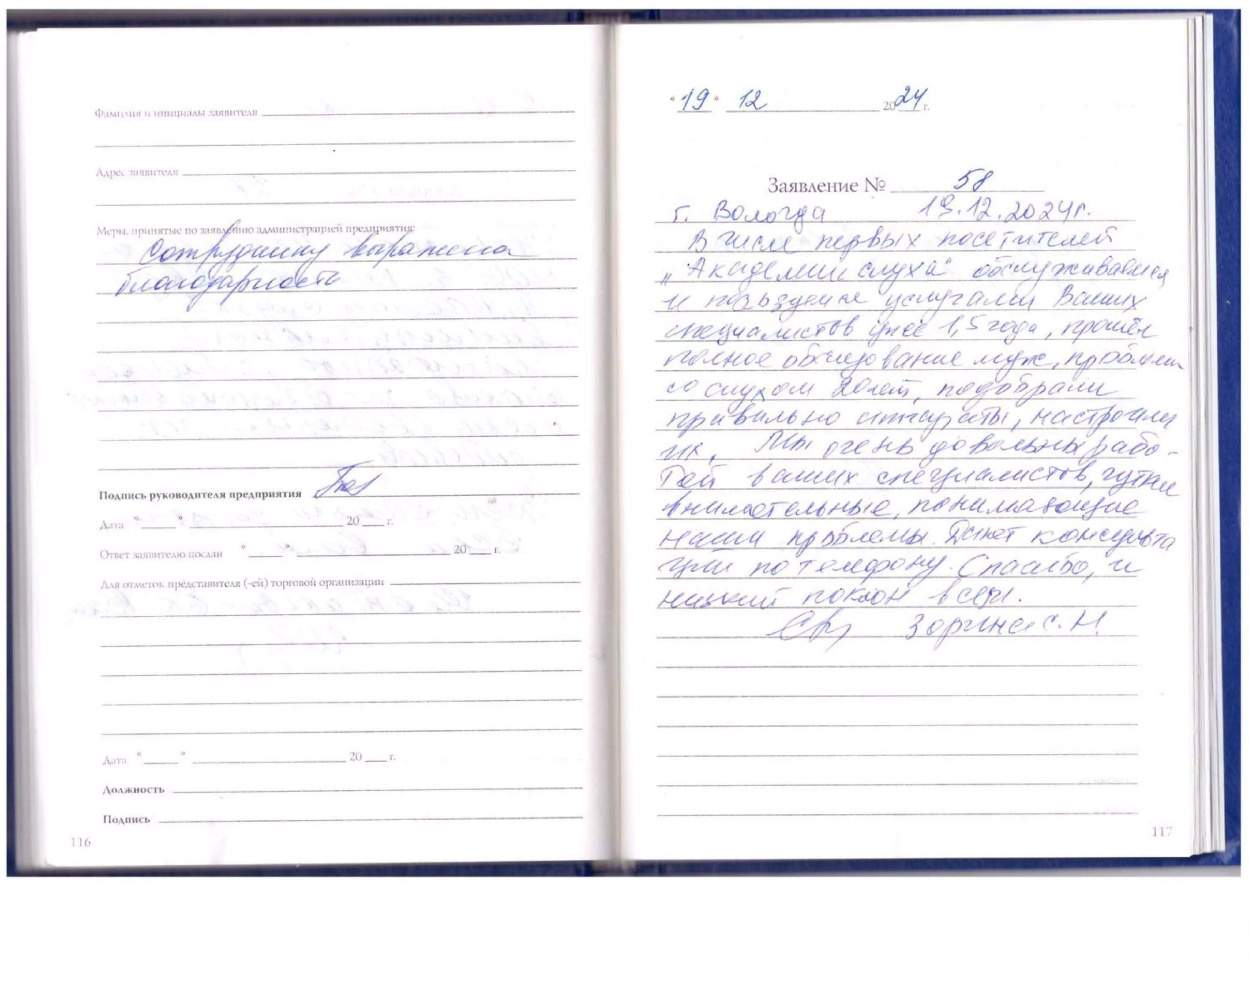 Фамилия и инициалы заявителя
Адрес заявителя
Меры, принятые по заявлению администрацией предприятия:
Сотруднику выражена
благодарность
Подпись руководителя предприятия
Дата " " 20 г.
Ответ заявителю послан " " 20 г.
Для отметок представителя (-ей) торговой организации
Дата " " 20 г.
Должность
Подпись
116
"19" 12 2024 г.
Заявление № 58
г. Вологда 19.12.2024г.
В числе первых посетителей
„Академии слуха" обслуживаемся
и пользуемся услугами Ваших
специалистов уже 1,5 года, прошёл
полное обследование муж, проблемы
со слухом 20 лет, подобрали
правильно аппараты, настроили
их. Мы очень довольны рабо-
той ваших специалистов, чуткие
внимательные, понимающие
наши проблемы. Дают консульта
ции по телефону. Спасибо, и
низкий поклон всем.
Зорина С.Н.
117